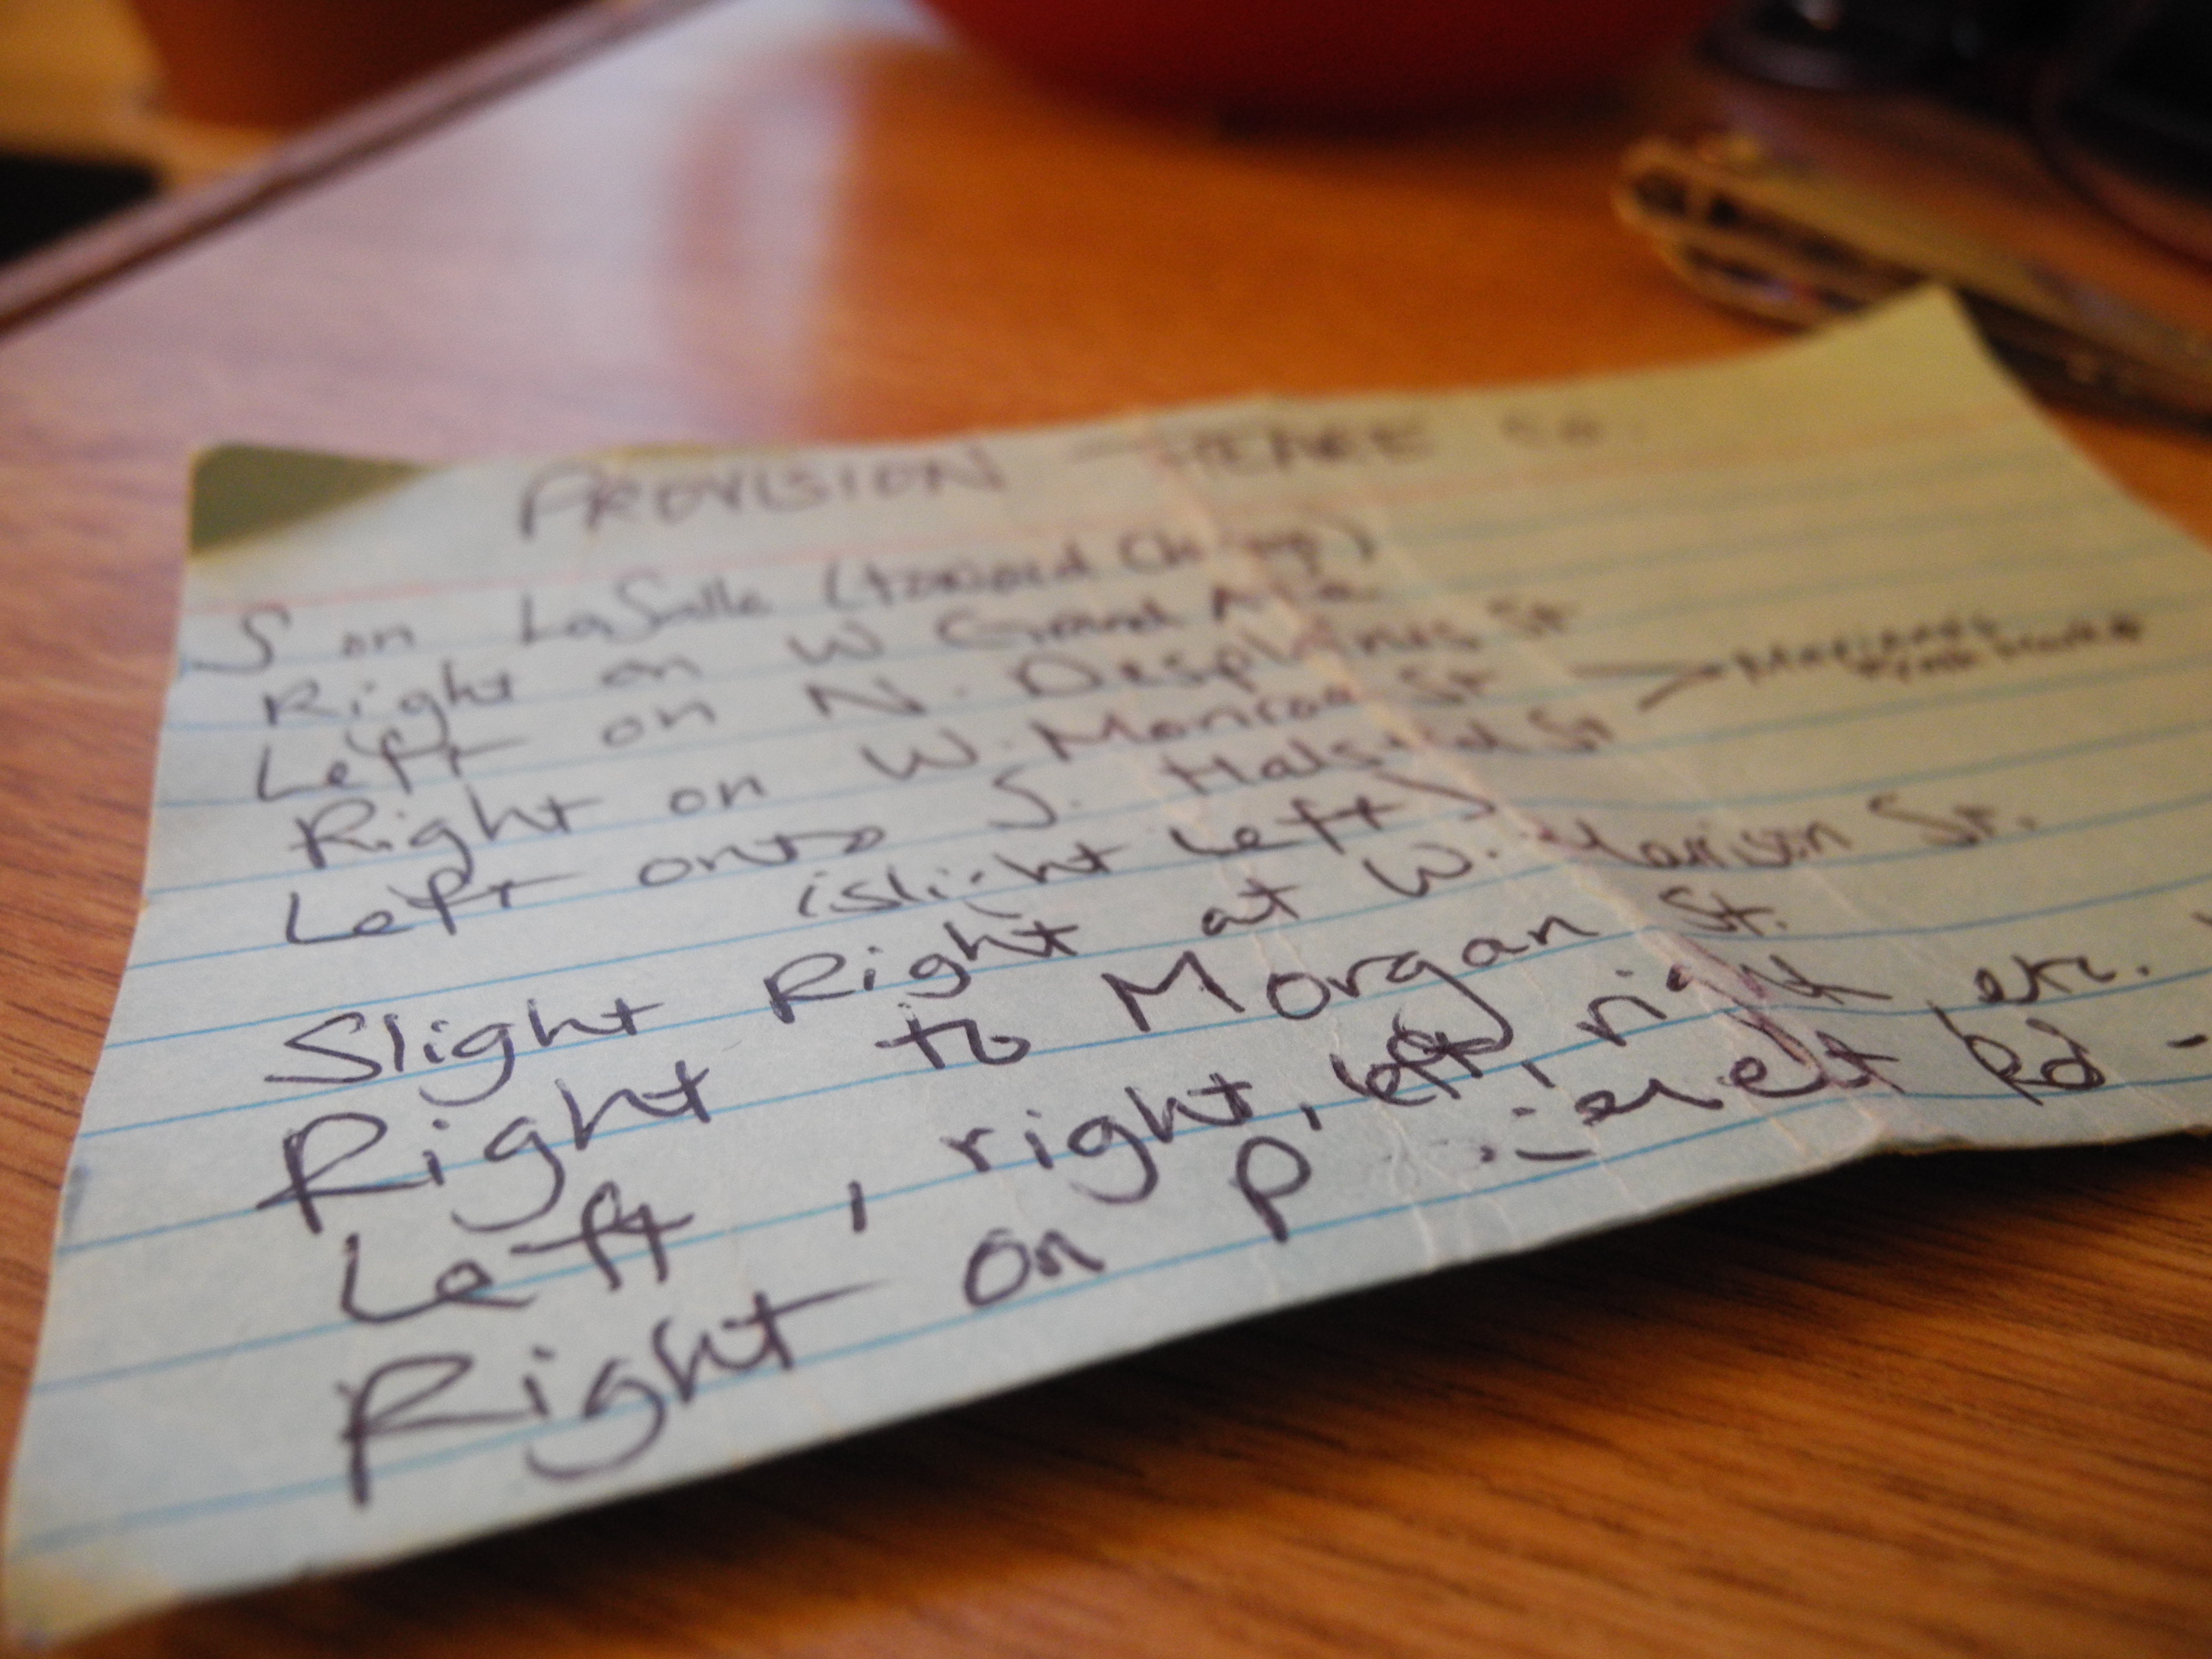 PROVISION
S on LaSalle (toward
Right on W Grand Ave
Left on N. Desplaines St
Right on W. Monroe St
Left onto S. Halsted St
(slight left)
Slight Right at W. Harrison St.
Right to Morgan St.
Left, right, left, right, etc.
Right on Rd -